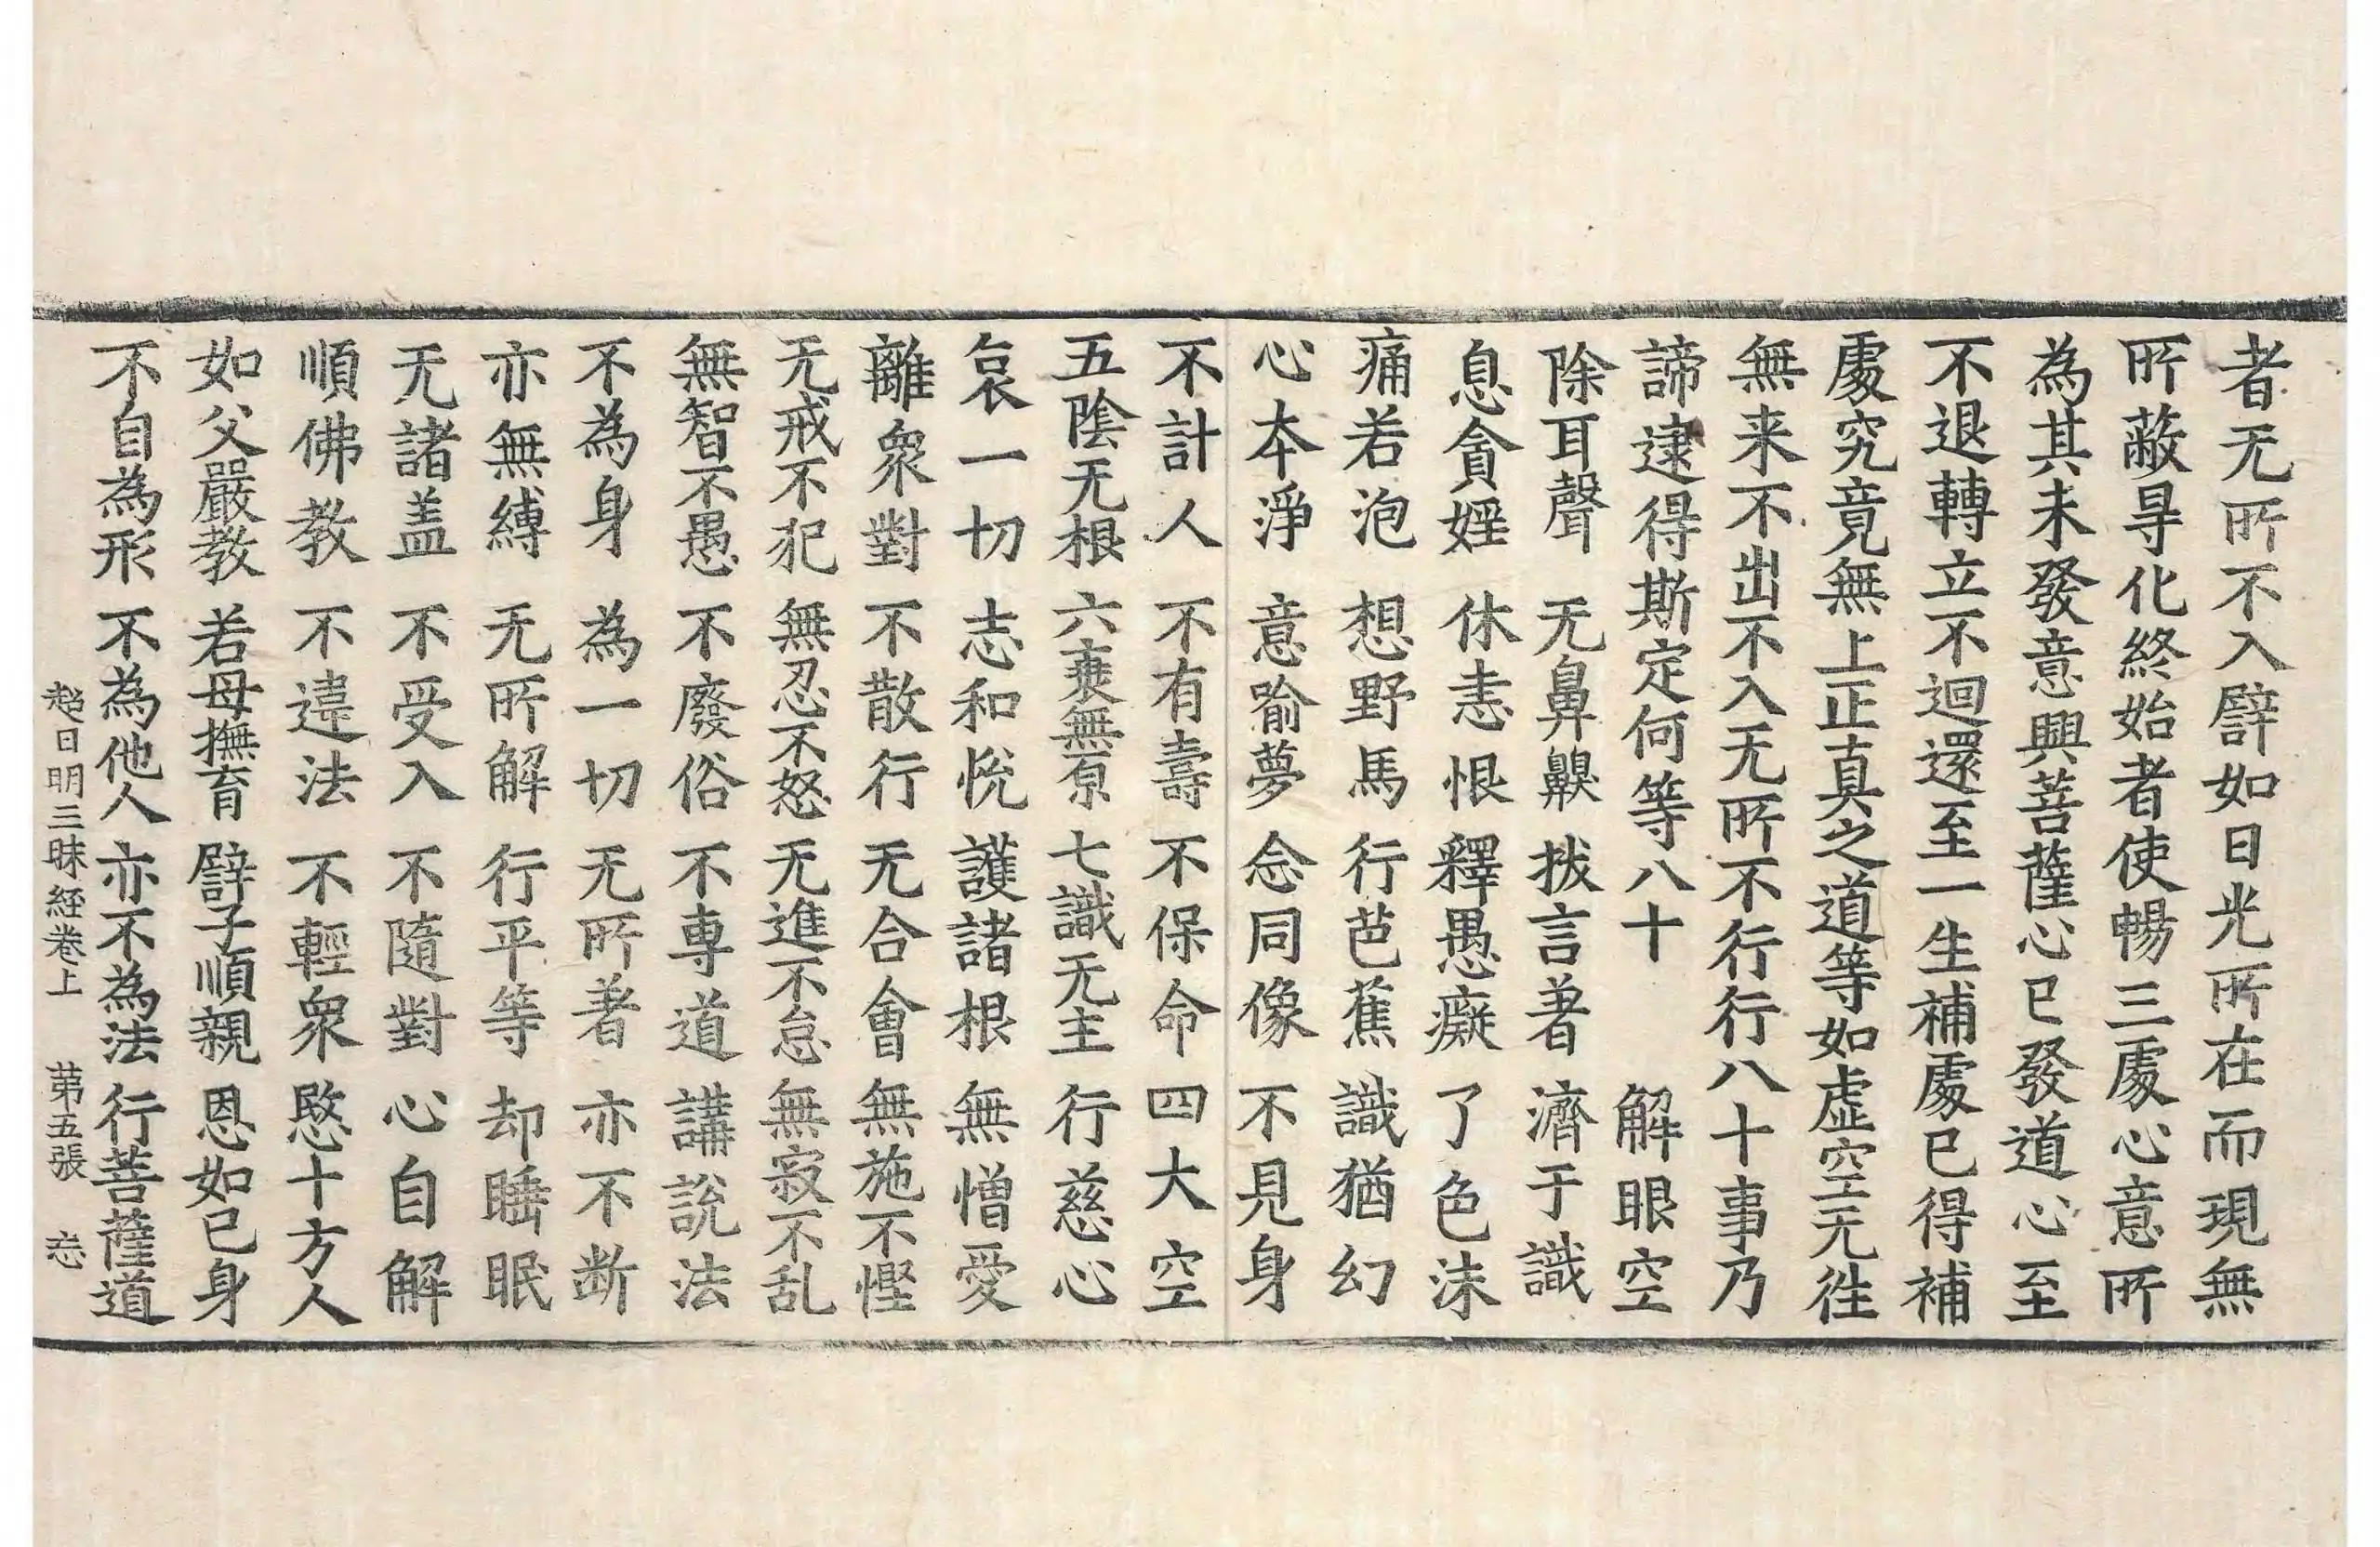 者无所不入譬如日光所在而現無
所蔽㝵化終始者使暢三處心意所
為其未發意興菩薩心已發道心至
不退轉立不迴還至一生補處已得補
處究竟無上正真之道等如虛空无徃
無来不出不入无所不行行八十事乃
諦逮得斯定何等八十　解眼空
除耳聲　无鼻齅　拔言著　濟于識
息貪婬　休恚恨　釋愚癡　了色沫
痛若泡　想野馬　行芭蕉　識猶幻
心本淨　意喻夢　念同像　不見身
不計人　不有壽　不保命　四大空
五陰无根　六衰無原　七識无主　行慈心
哀一切　志和悅　護諸根　無憎愛
離衆對　不散行　无合會　無施不慳
无戒不犯　無忍不怒　无進不怠　無寂不乱
無智不愚　不廢俗　不專道　講說法
不為身　為一切　无所著　亦不断
亦無縛　无所解　行平等　却睡眠
无諸盖　不受入　不隨對　心自解
順佛教　不違法　不輕衆　愍十方人
如父嚴教　若母撫育　譬子順親　恩如已身
不自為形　不為他人　亦不為法　行菩薩道
超日明三昧経卷上　苐五張　忘